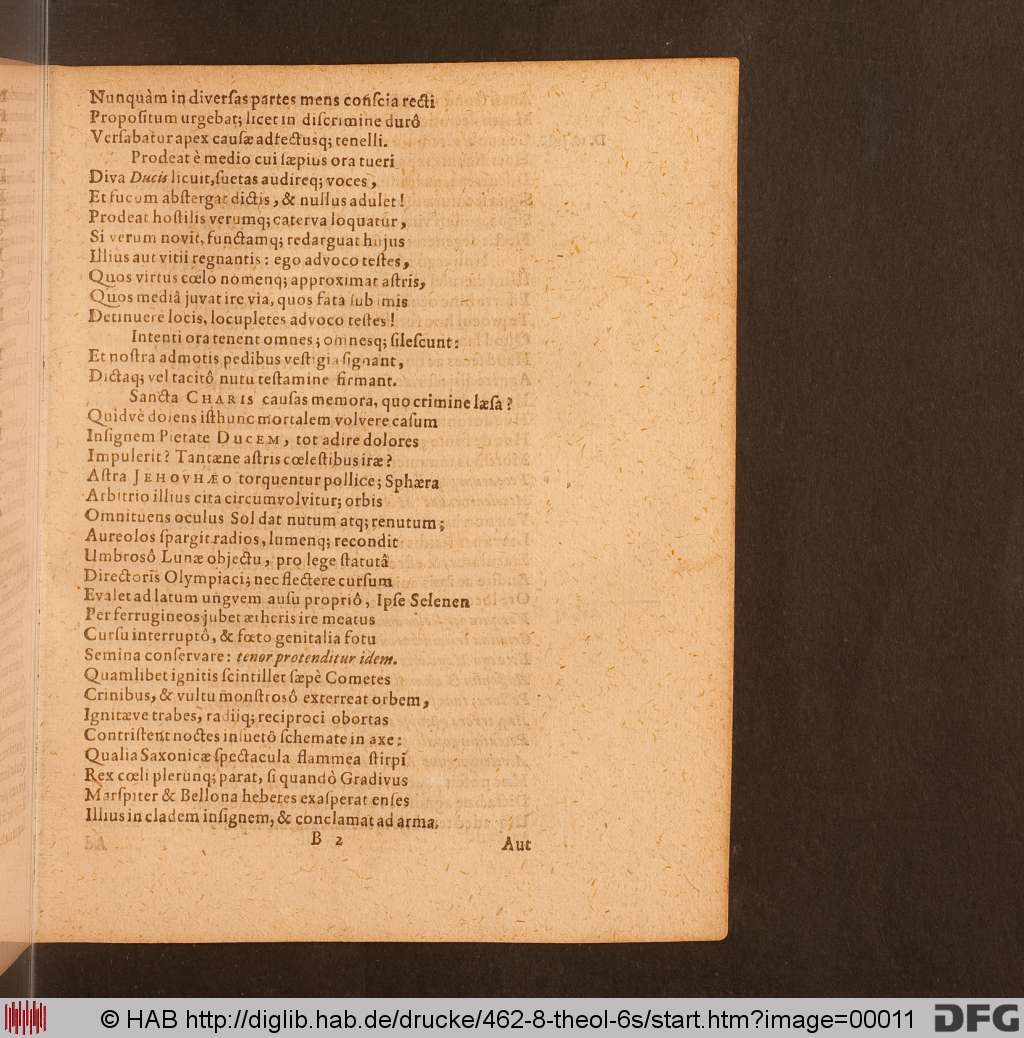 Nunquàm in diverſas partes mens conſcia recti
Propoſitum urgebat; licet in diſcrimine durô
Verſabatur apex cauſæ adfectusq; tenelli.
Prodeat è medio cui ſæpius ora tueri
Diva Ducis licuit, ſuetas audireq; voces,
Et fucum abſtergat dictis, & nullus adulet!
Prodeat hoſtilis verumq; caterva loquatur,
Si verum novit, functamq; redarguat hujus
Illius aut vitii regnantis: ego advoco teſtes,
Quos virtus cœlo nomenq; approximat aſtris,
Quos mediâ juvat ire via, quos fata ſub imis
Detinuere locis, locupletes advoco teſtes!
Intenti ora tenent omnes; omnesq; ſileſcunt:
Et noſtra admotis pedibus veſtigia ſignant,
Dictaq; vel tacitô nutu teſtamine firmant.
Sancta CHARIS cauſas memora, quo crimine læſa?
Quidvè dolens iſthunc mortalem volvere caſum
Inſignem Pietate DUCEM, tot adire dolores
Impulerit? Tantæne aſtris cœleſtibus iræ?
Aſtra JEHOVHÆO torquentur pollice; Sphæra
Arbitrio illius cita circumvolvitur; orbis
Omnituens oculus Sol dat nutum atq; renutum;
Aureolos ſpargit radios, lumenq; recondit
Umbroſô Lunæ objectu, pro lege ſtatutâ
Directoris Olympiaci; nec flectere curſum
Evalet ad latum ungvem auſu propriô, Ipſe Selenen
Per ferrugineos jubet ætheris ire meatus
Curſu interruptô, & fœto genitalia fotu
Semina conſervare: tenor protenditur idem.
Quamlibet ignitis ſcintillet ſæpè Cometes
Crinibus, & vultu monſtroſô exterreat orbem,
Ignitæve trabes, radiiq; reciproci obortas
Contriſtent noctes inſuetô ſchemate in axe:
Qualia Saxonicæ ſpectacula flammea ſtirpi
Rex cœli plerunq; parat, ſi quandò Gradivus
Marſpiter & Bellona hebetes exaſperat enſes
Illius in cladem inſignem, & conclamat ad arma.
B 2
Aut
© HAB http://diglib.hab.de/drucke/462-8-theol-6s/start.htm?image=00011
DFG